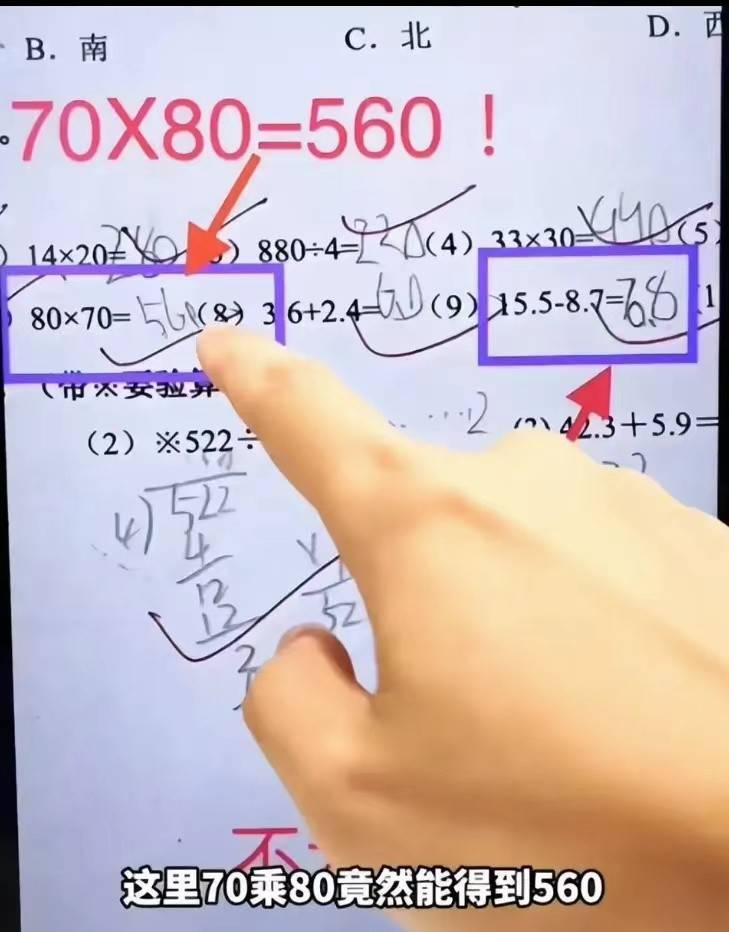 B. 南 C. 北 D. 西
70X80=560！
14×20=280 ) 880÷4=220 (4) 33×30= (5)
80×70=560 (8) 3.6+2.4=6.0 (9) 15.5-8.7=
(带※要验算
(2) ※522÷ ……2 (3) 42.3+5.9=
522
4
4
12
12
2
52
不
这里70乘80竟然能得到560